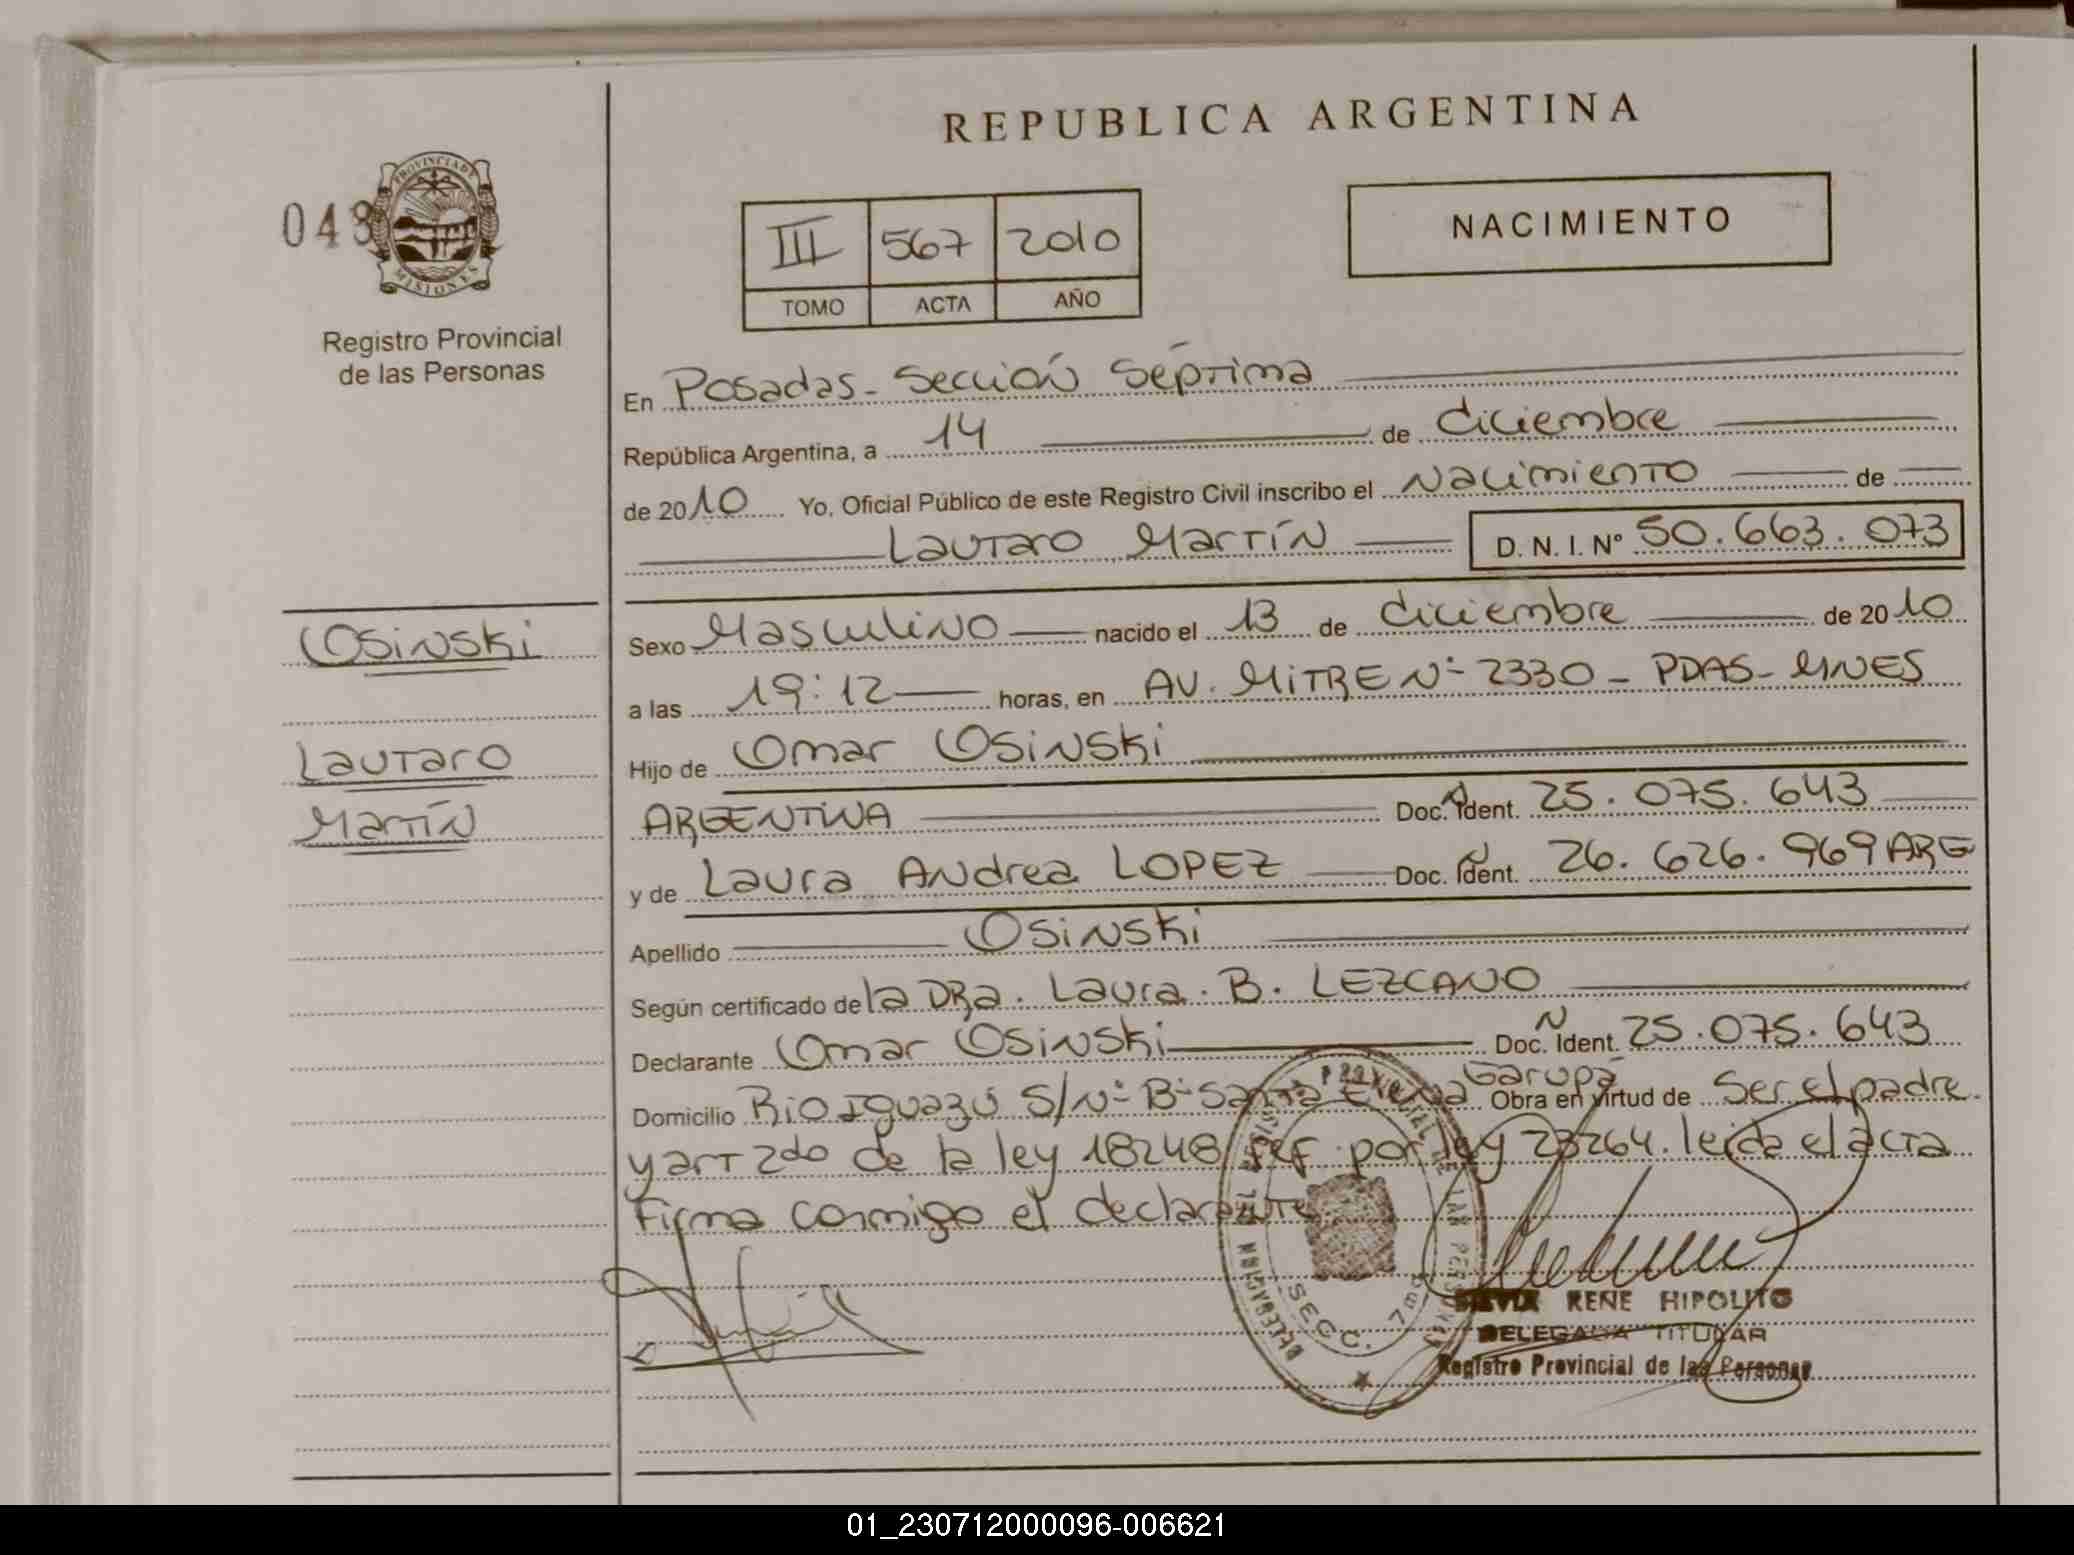 REPUBLICA ARGENTINA
043
PROVINCIA DE
MISIONES
Registro Provincial
de las Personas
III 567 2010
TOMO ACTA AÑO
NACIMIENTO
En Posadas - Sección Séptima
República Argentina, a 14 de diciembre
de 2010 Yo, Oficial Público de este Registro Civil inscribo el Nacimiento de
Lautaro Martín D. N. I. Nº 50.663.073
Osinski
Lautaro
Martín
Sexo Masculino nacido el 13 de diciembre de 2010
a las 19:12 horas, en AV. MITRE Nº 2330 - PDAS - MNES
Hijo de Omar Osinski
ARGENTINA Doc. Ident. 25.075.643
y de Laura Andrea LOPEZ Doc. Ident. 26.626.969 ARG
Apellido Osinski
Según certificado de la DRa. Laura. B. LEZCANO
Declarante Omar Osinski Doc. Ident. N 25.075.643
Domicilio Rio Iguazú S/Nº Bº Santa Elena Garupá Obra en virtud de Ser el padre.
y art 2do de la ley 18248 ref. por ley 23264. leida el acta
firma conmigo el declarante
SECC. 7ma
SILVIA RENE HIPOLITO
DELEGADA TITULAR
Registro Provincial de las Personas
01_230712000096-006621